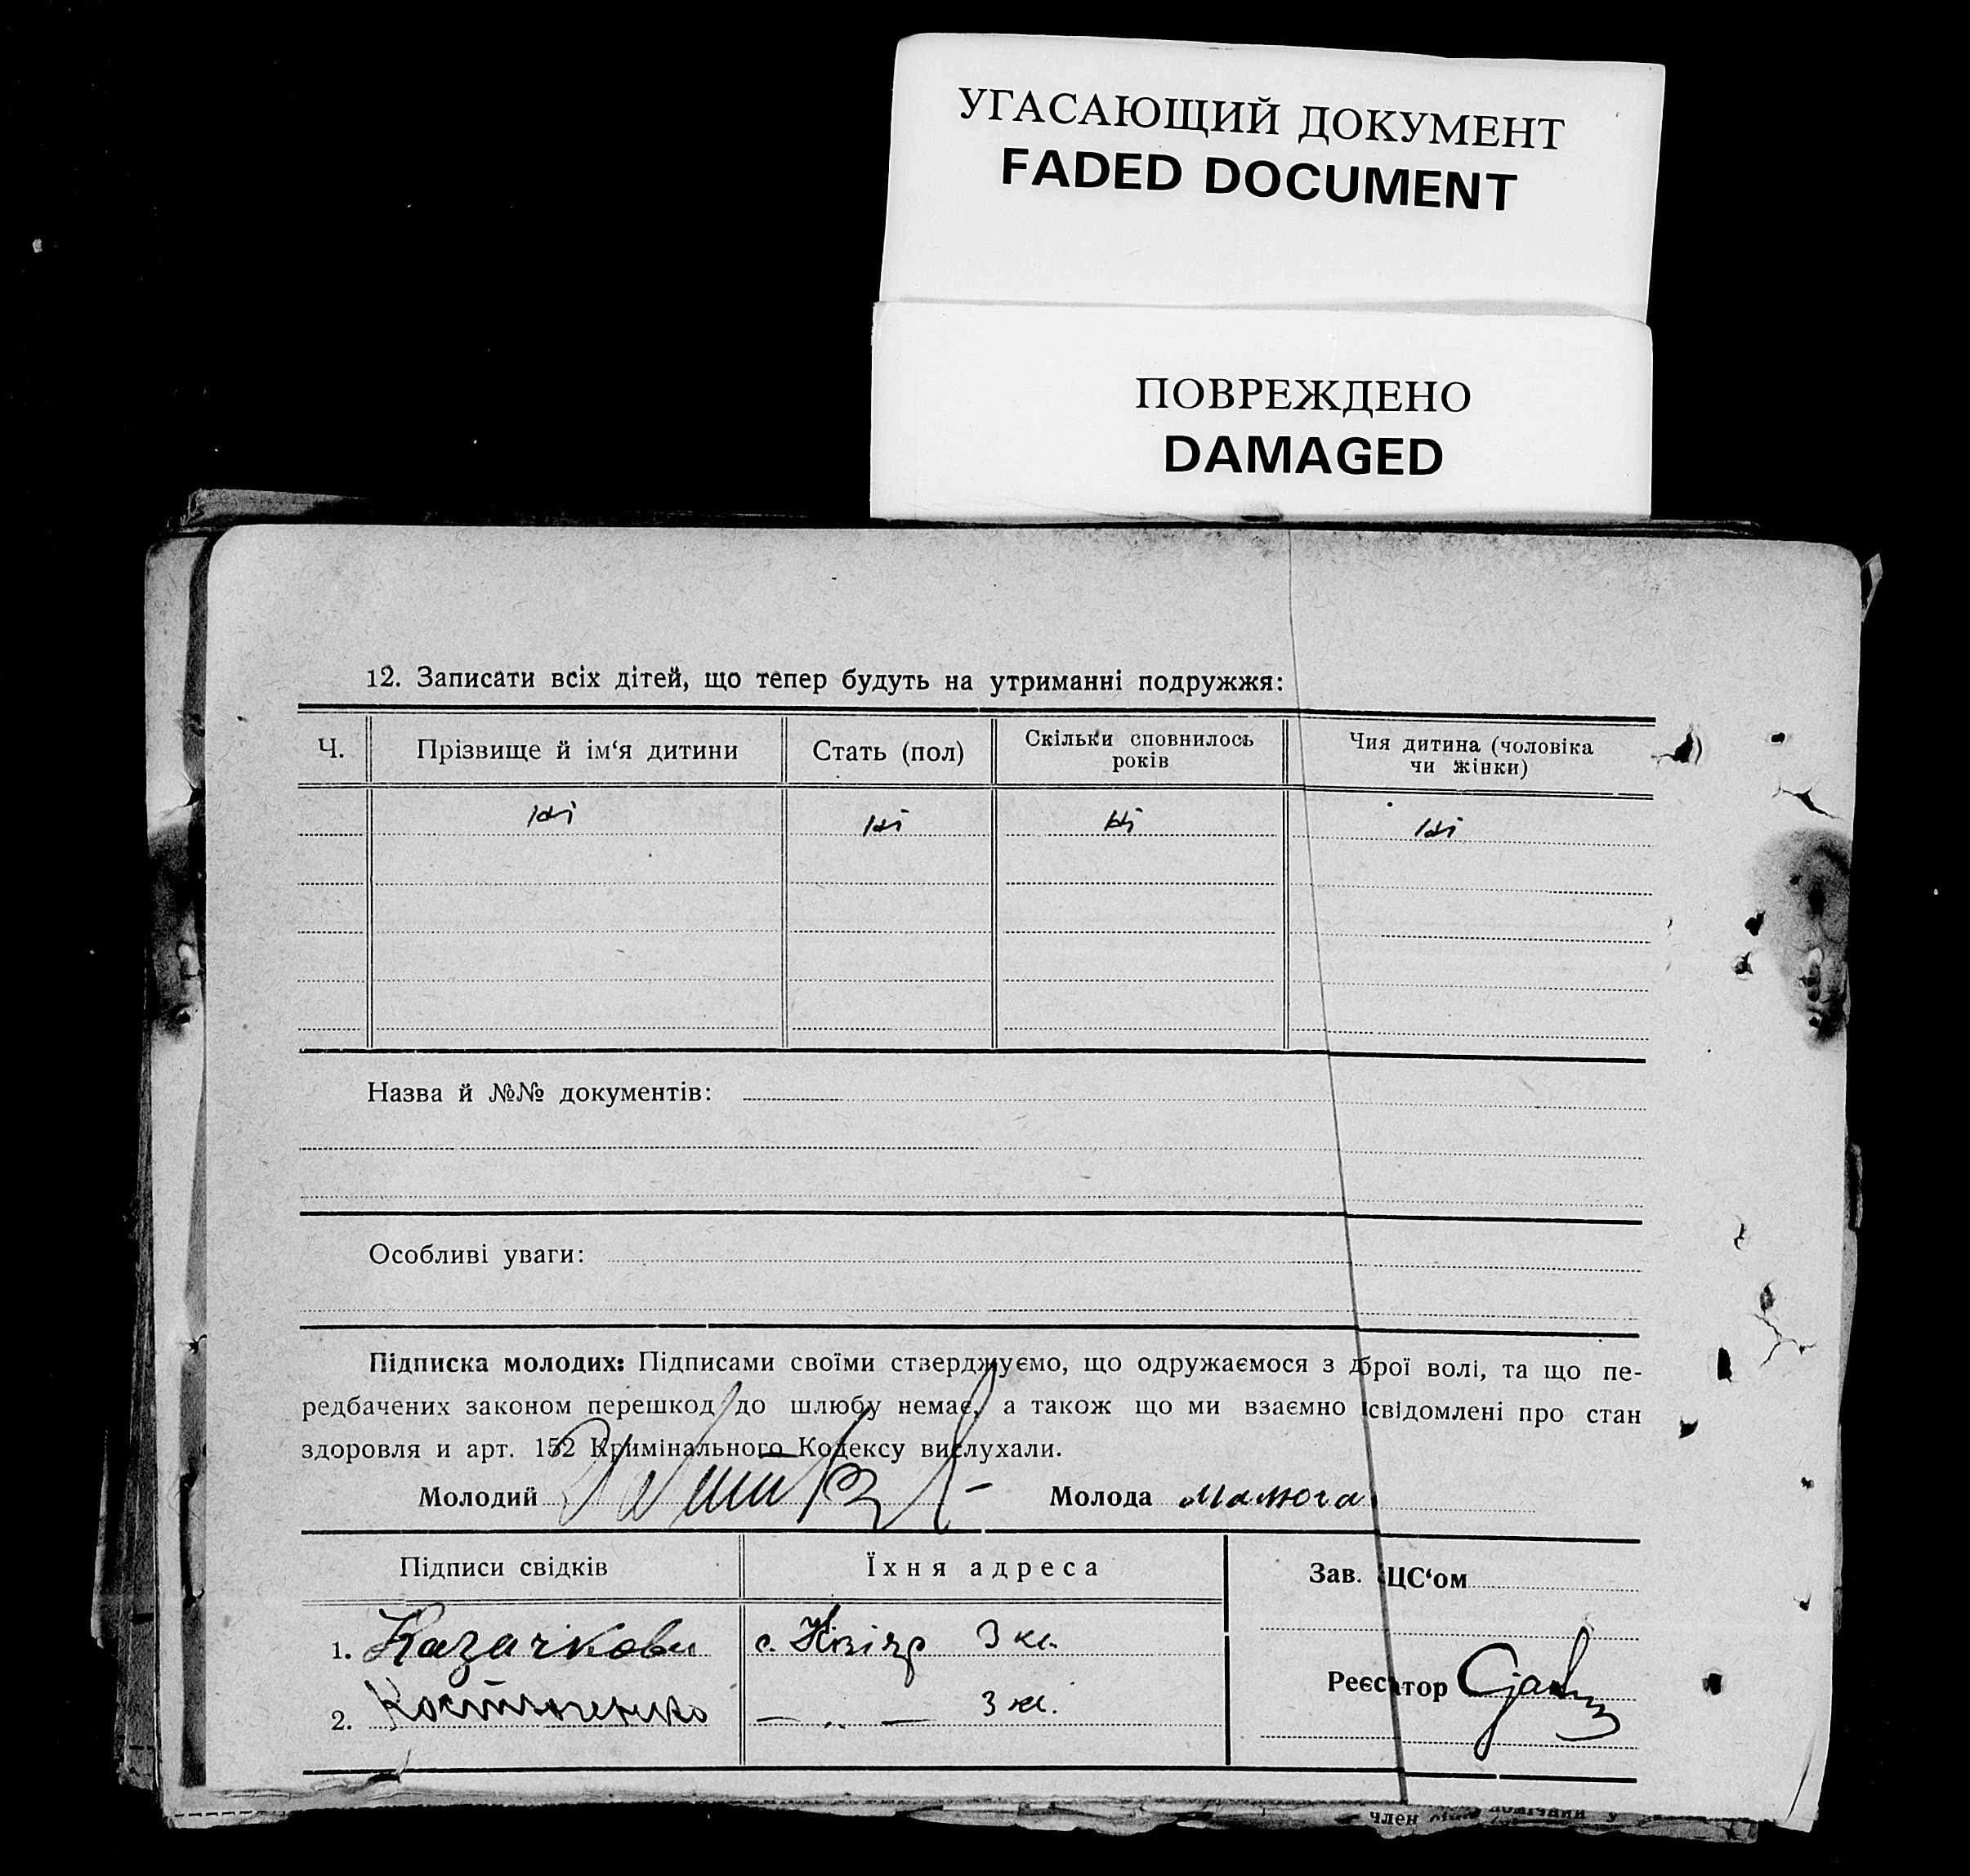 УГАСАЮЩИЙ ДОКУМЕНТ
FADED DOCUMENT
ПОВРЕЖДЕНО
DAMAGED
12. Записати всіх дітей, що тепер будуть на утриманні подружжя:
Ч. Прізвище й ім‘я дитини Стать (пол) Скільки сповнилось років Чия дитина (чоловіка чи жінки)
ні ні ні ні
Назва й №№ документів:
Особливі уваги:
Підписка молодих: Підписами своїми стверджуємо, що одружаємося з дброї волі, та що пе-
редбачених законом перешкод до шлюбу немає, а також що ми взаємно свідомлені про стан
здоровля и арт. 152 Кримінального Кодексу вислухали.
Молодий Молода Малюга
Підписи свідків Їхня адреса Зав. ЦС‘ом
1. с. 3 кл.
Реєс тор
2. Костюченко — „ — 3 кл.
член